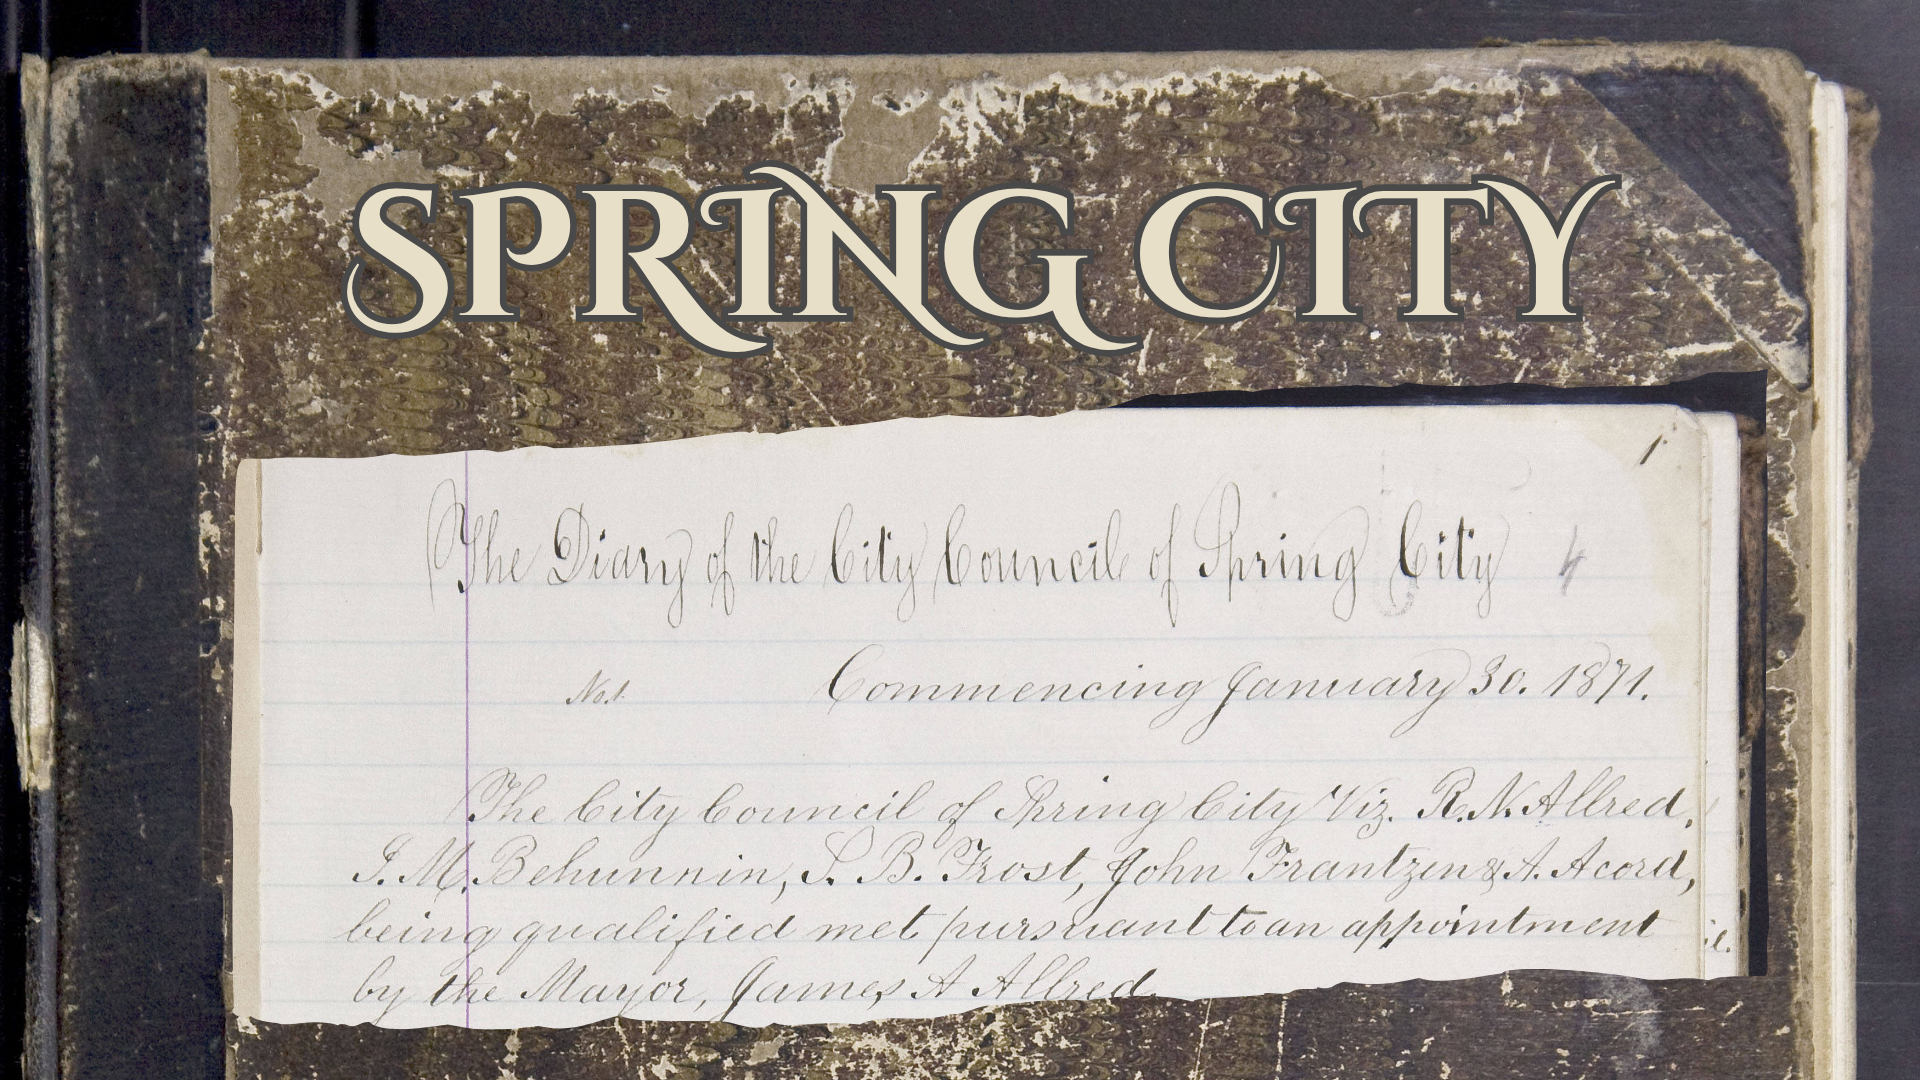 SPRING CITY
1
The Diary of the City Council of Spring City 4
No.1. Commencing January 30. 1871.
The City Council of Spring City Viz. R. N. Allred,
I. M. Behunnin, S. B. Frost, John Frantzen & A. Acord,
being qualified met pursuant to an appointment
by the Mayor, James A Allred